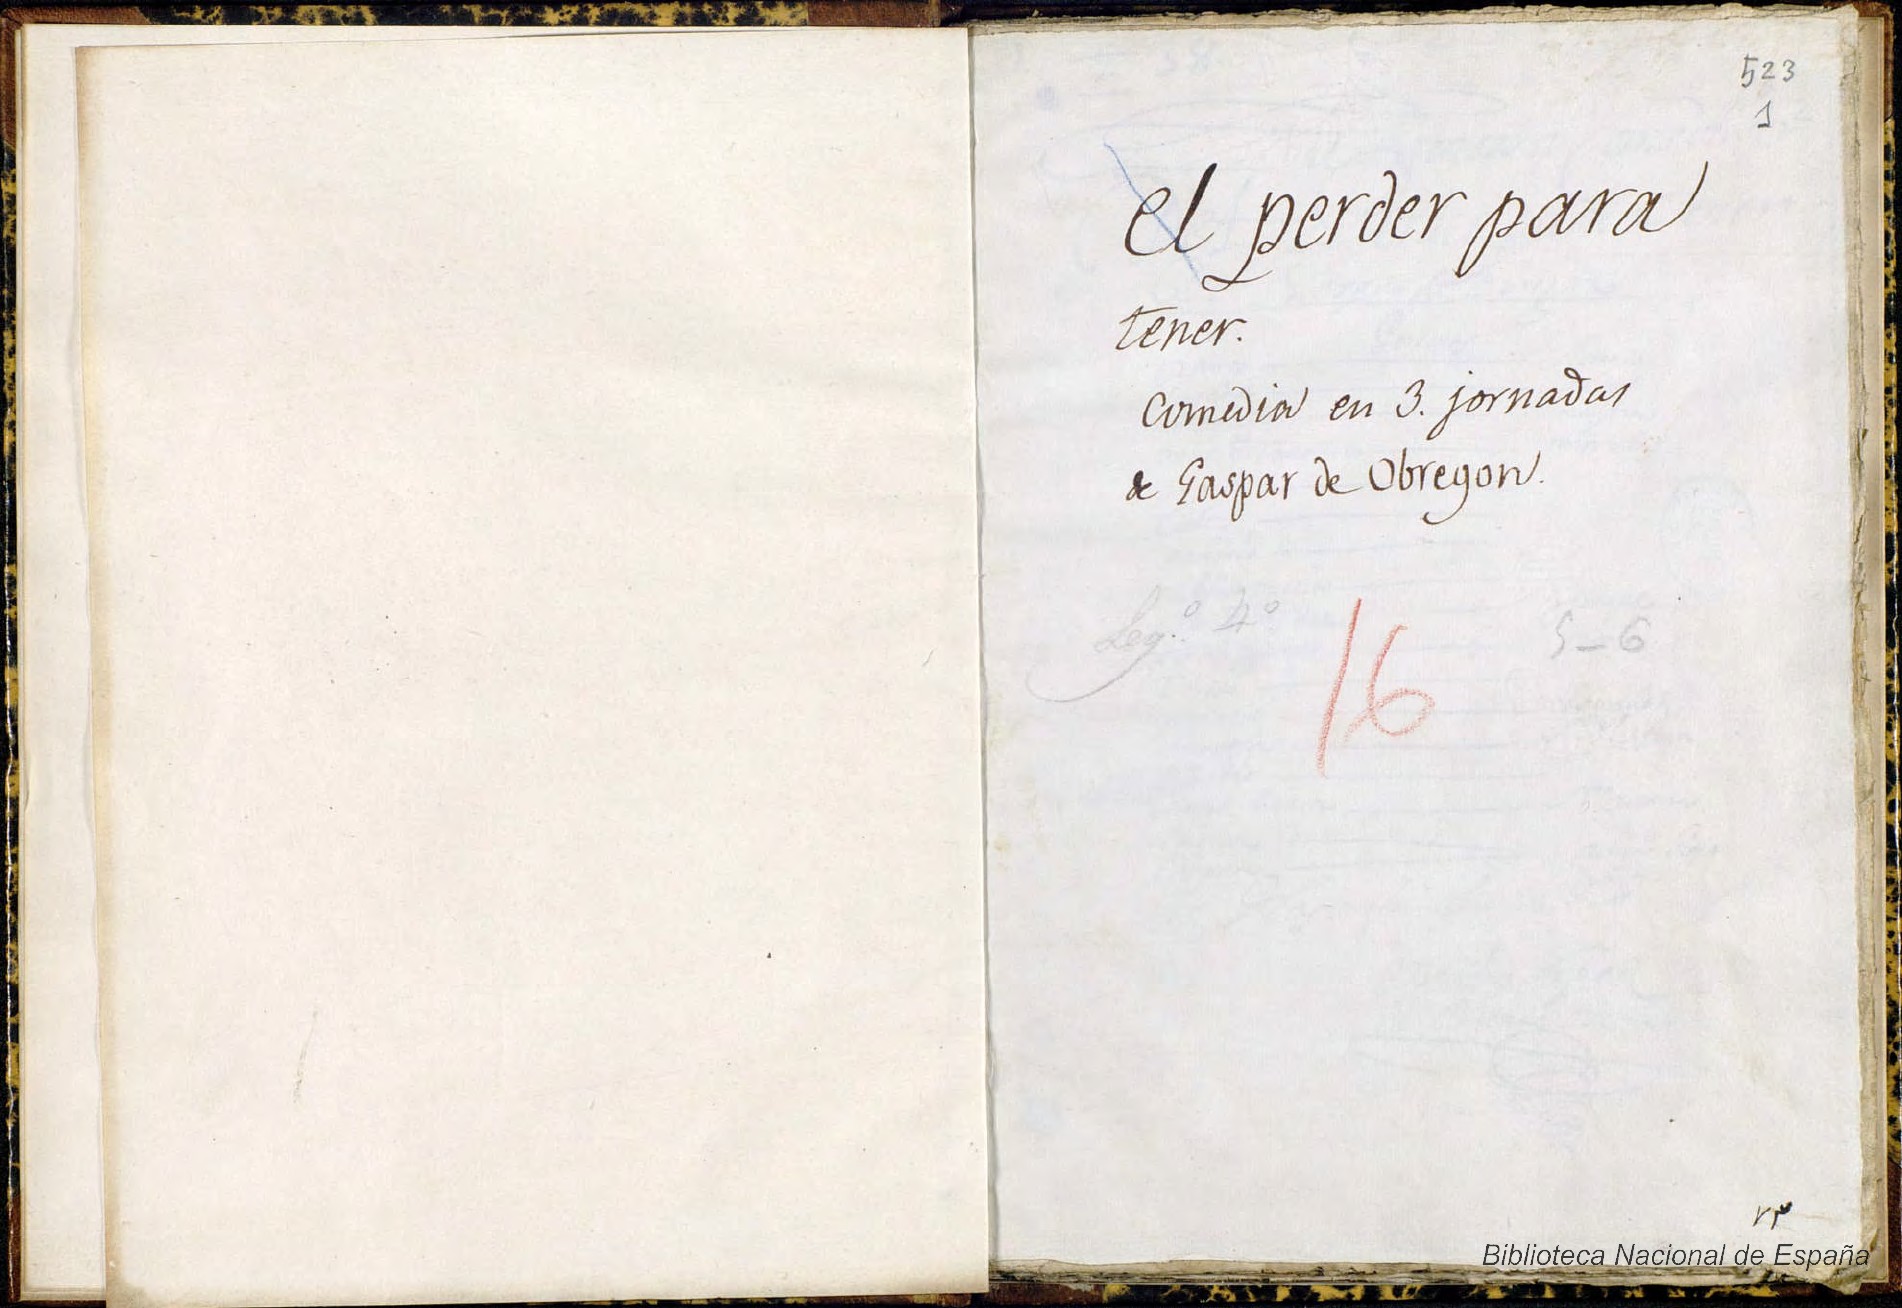 523
1
el perder para
tener.
Comedia en 3. jornadas
de Gaspar de Obregon.
Leg.º 4º
5-6
16
Biblioteca Nacional de España